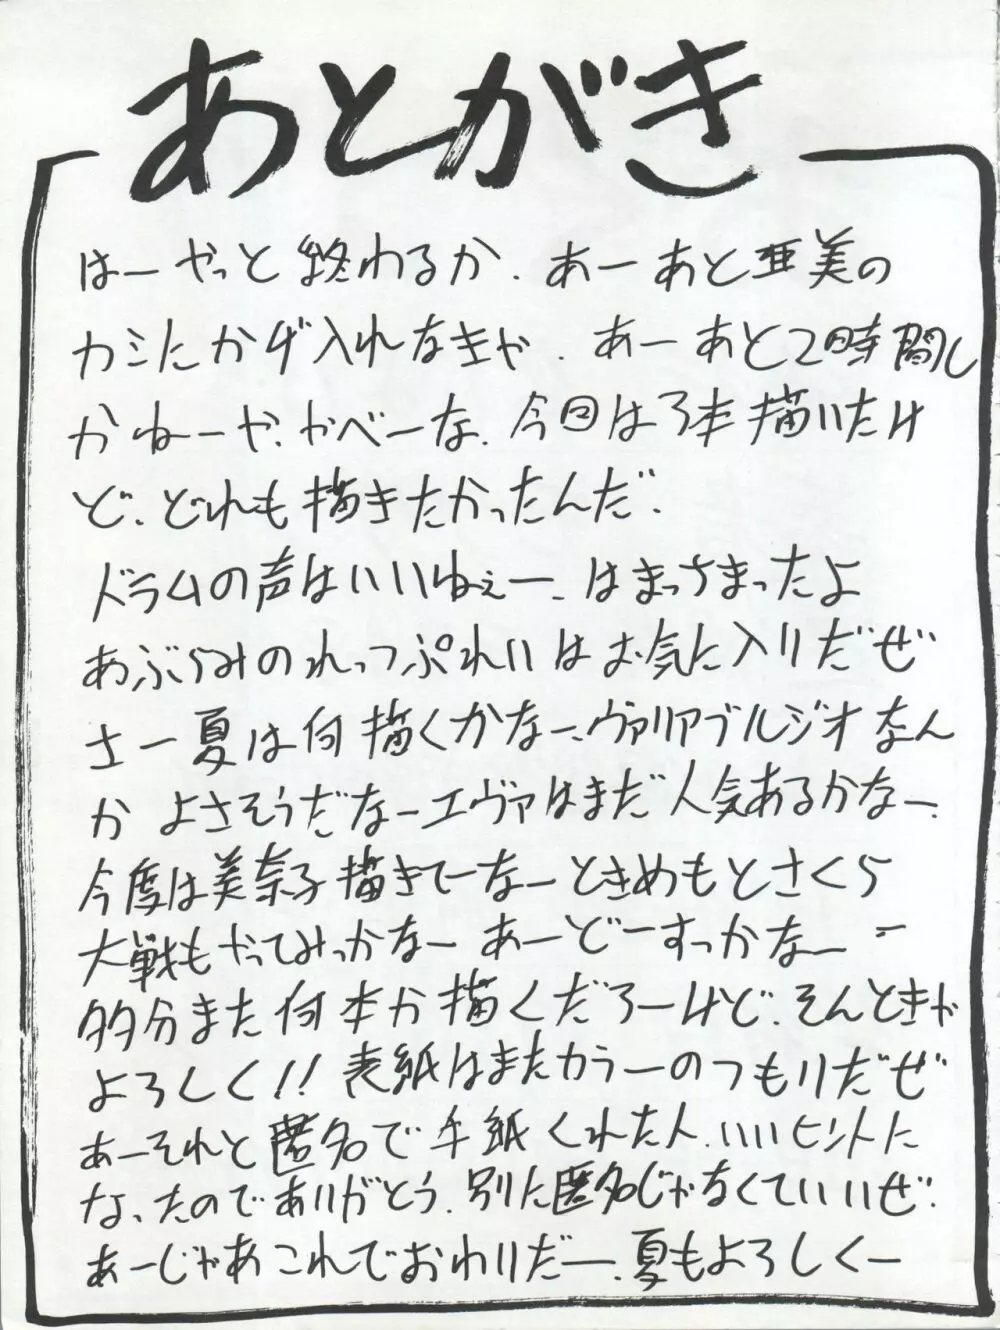 あとがき
はーやっと終わるか、あーあと亜美の
カシにかげ入れなきゃ、あーあと2時間し
かねーや、やべーな、今回は3本描いたけ
ど、どれも描きたかったんだ、
ドラムの声はいいねぇー、はまっちまったよ
あぶらみのれっつぷれいはお気に入りだぜ
さー夏は何描くかなー、ヴァリアブルジオなん
か よさそうだなーエヴァはまだ人気あるかなー、
今度は美奈子描きてーなーときめもとさくら
大戦もやってみっかなー あーどーすっかなー
多分また何本か描くだろーけど、そんときゃ
よろしく!!表紙はまたカラーのつもりだぜ
あーそれと匿名で手紙くれた人、いいヒントに
なったのでありがとう、別に匿名じゃなくていいぜ、
あーじゃあこれでおわりだー、夏もよろしくー